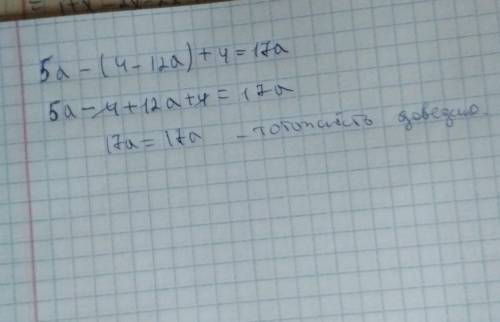 5a - (4 - 12a) + 4 = 17a
5a - 4 + 12a + 4 = 17a
17a = 17a - тотожність доведено.